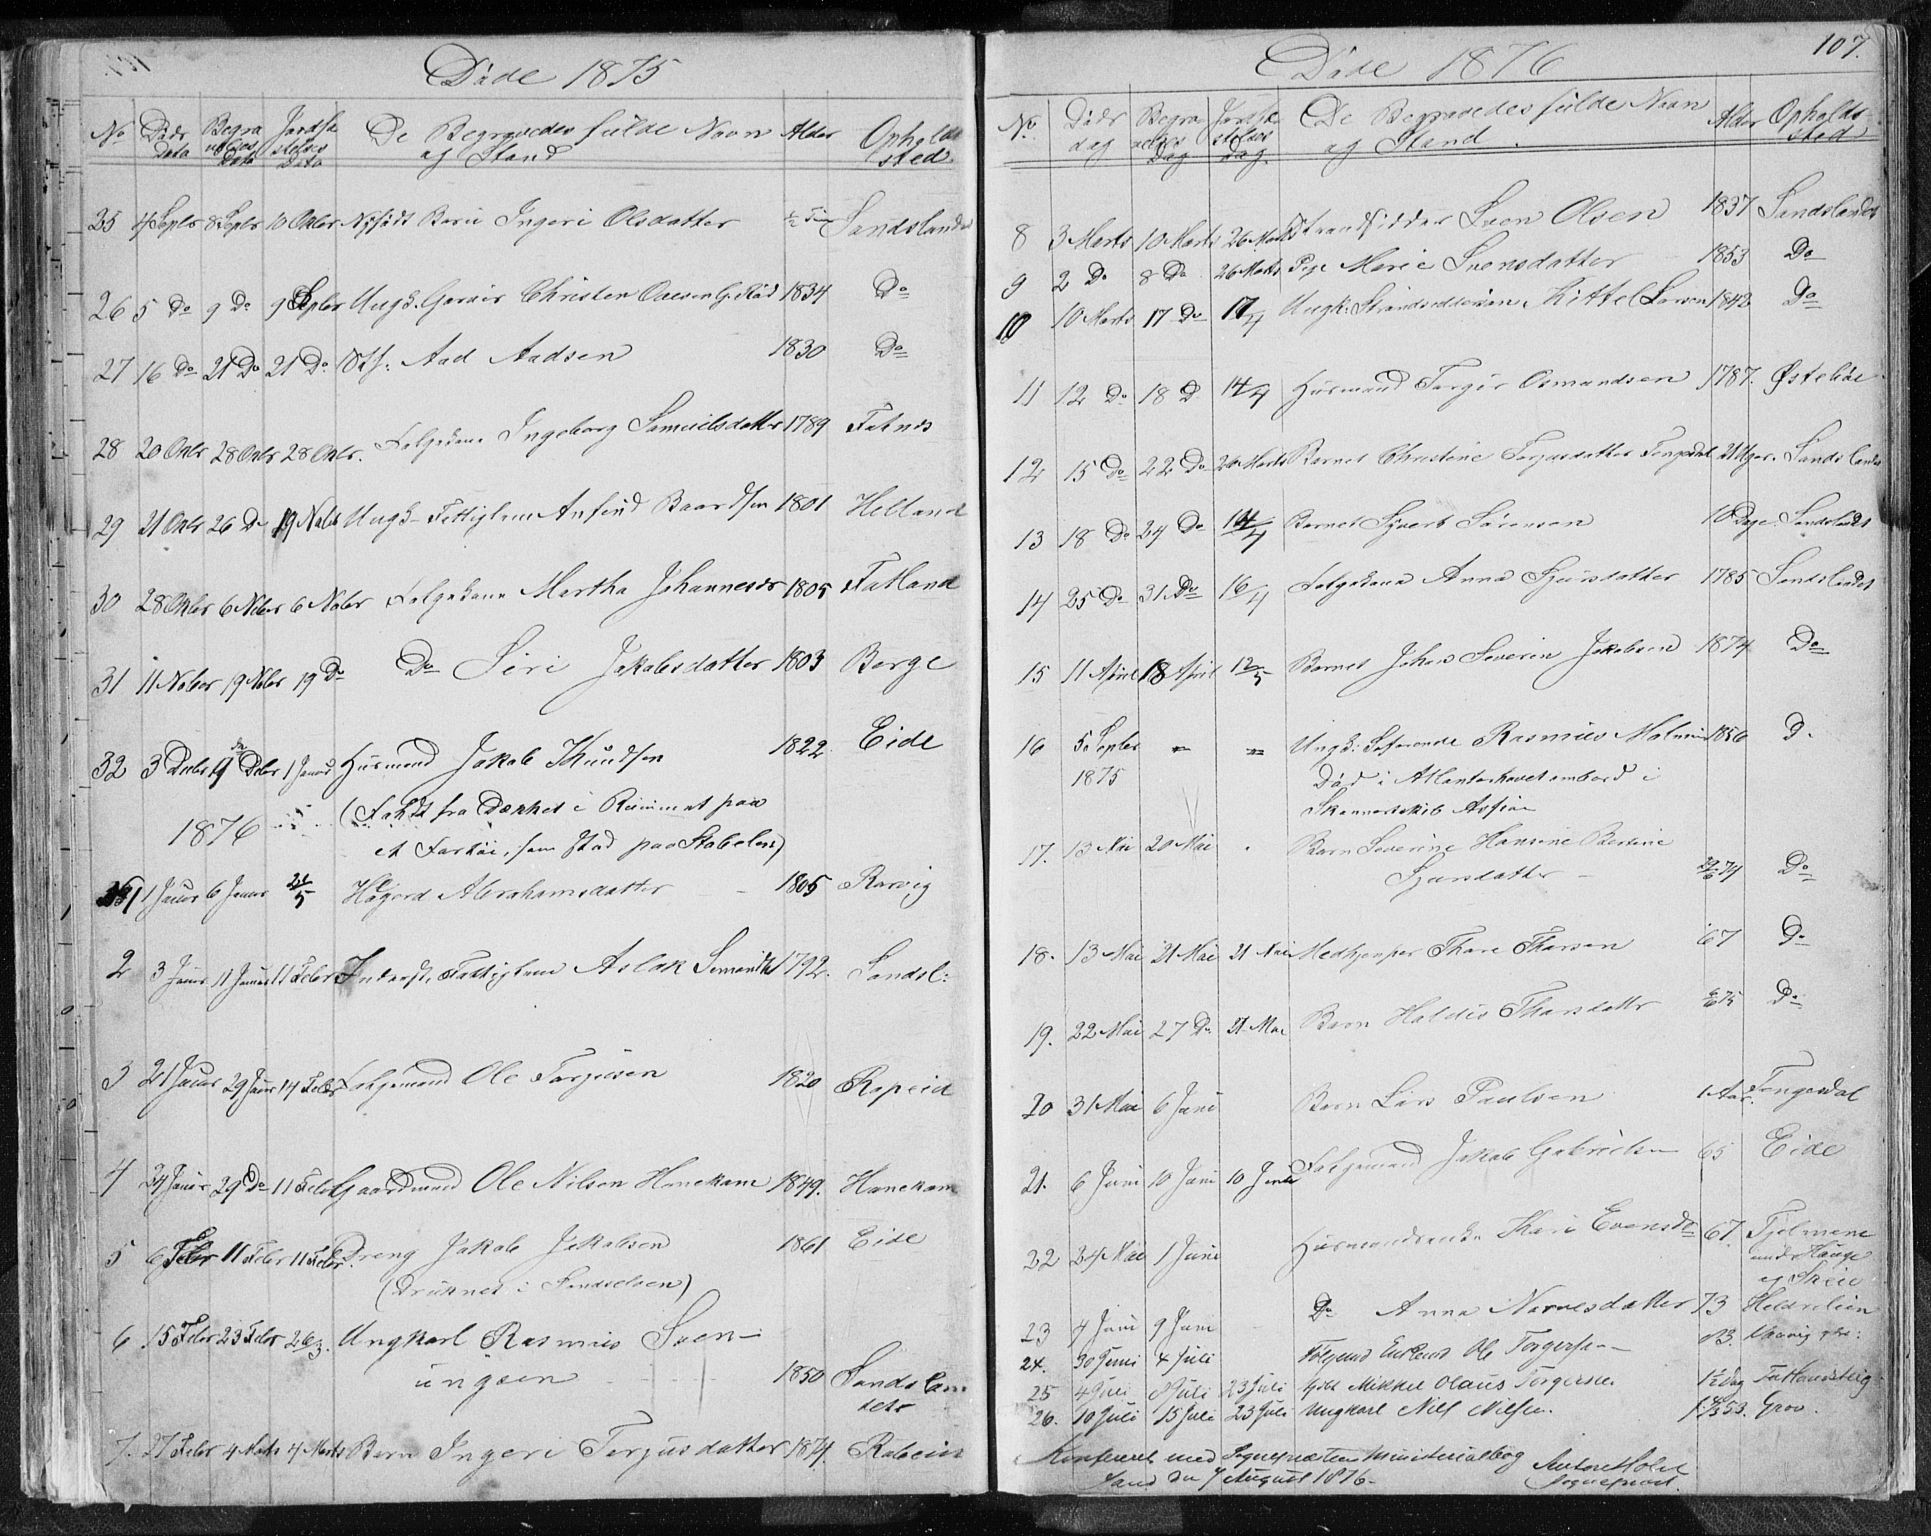 Døde 1875
No Døds data Begravelses Data Jordfæstelses Data De Begravedes fulde Navn og Stand Alder Opholdssted
25 4 Septr 8 Septr 10 Oktbr Nyfødt Barn Ingeri Olsdatter Sandslandet
26 5 Do 9 Do 9 Septbr Ungk. Garver Christen 1834 Do
27 16 Do 21 Do 21 Do Aad Aadsen 1830 Do
28 20 Oktbr 28 Oktbr 28 Oktbr. Folgekone Ingeborg Samuelsdatter 1789 Fatnes
29 21 Oktbr 26 Do 19 Nobr Ungk. Fattiglem Anfind Baardsen 1801 Helland
30 28 Oktbr 6 Nobr 6 Nobr Folgekone Martha Johannesdr 1805 Fatland
31 11 Nobr 19 Nobr 19 Do Do Siri Jakobsdatter 1803 Berge
32 3 Decbr 9 Decbr 1 Januar Husmand Jakob Knudsen 1822 Eide
(Faldt fra Dækket i Rummet paa
1876 et Fartøi, som stod paa Stabelen)
1 1 Januar 6 Januar 21/5 Abrahamsdatter 1805 Rarvig
2 3 Januar 11 Januar 11 Febr Fattiglem Aslak 1792. Sandsl:
3 21 Januar 29 Januar 14 Febr Folgemand Ole Torjusen 1820 Ropeid
4 24 Januar 29 Do 11 Febr Gaardmand Ole Nilsen Hanekam 1849. Hanekam
5 6 Febr 11 Febr 11 Febr. Dreng Jakob Jakobsen 1861 Eide
(Druknet i Sandselven)
6 15 Febr 23 Febr 26/3. Ungkarl Rasmus Svenungsen 1850 Sandslandet
7. 27 Febr 4 Marts 4 Marts Barn Ingeri Torjusdatter 1874.
107.
Døde 1876
No. Døds dag Begravelses Dag Jordfæstelses Dag. De Begravedes fulde Navn og Stand. Alder Opholdssted
8 3 Marts 10 Marts 26 Marts Strandsidder Svon Olsen 1837 Sandslandet
9 2 Do 8 Do 26 Marts Pige Marie Svensdatter 1853 Do
10 10 Marts 17 Do 17/4 Ungk. Kittel Larsen 1842 Do
11 12 Do 18 D. 14/4 Husmand Torger Osmundsen 1787. Østebøe
12 15 Do 22 Do 26 Marts Barnet Christine Torjusdatter Tengesdal 21 Uger. Sandslandet
13 18 Do 24 Do 14/4 Barnet Sivert Sørensen 10 Dage. Sandslandet
14 25 Do 31 Do 16/4 Folgekone Anna Sjursdatter 1785 Sandslandet
15 11 April 18 April 12/5 Barnet Johan Severin Jakobsen 1874 Do
16 5 Septbr 1875 " " Ungk. Søfarende Rasmus 1856 D.
Død i Atlanterhavet ombord i
Skonnertskib
17. 13 Mai 20 Mai Barn Severine Hansine Bertine
Sjursdatter 74 Do
18. 13 Mai 21 Mai 21 Mai Medhjelper Thore Thorsen 67 Do
19. 22 Mai 27 Do 21 Mai Barn Haldis Thorsdatter 75 Do
20 31 Mai 6 Juni Barn Lars Paulsen 1 Aar. Tengesdal
21. 6 Juni 10 Juni 10 Juni Folgemand Jakob Gabrielsen 65 Eide
22 24 Mai 1 Juni Husmandsenke Kari Evensdr 67. Tjelmene under Hauge og Skeie
23 4 Juni 9 Juni Do Anna Narvesdatter 73
24. 30 Juni 4 Juli Ole Torgersen 03.
25 4 Juli 8 Juli 23 Juli Mikkel Olaus Torgersen 1½ dag Fatlandsteig
26. 10 Juli 15 Juli 23 Juli Ungkarl Nils Nilsen. 53. Grov.
Konfereret med Sognepræsten Ministerialbog
Sand den 7 August 1876. Sognepræst.